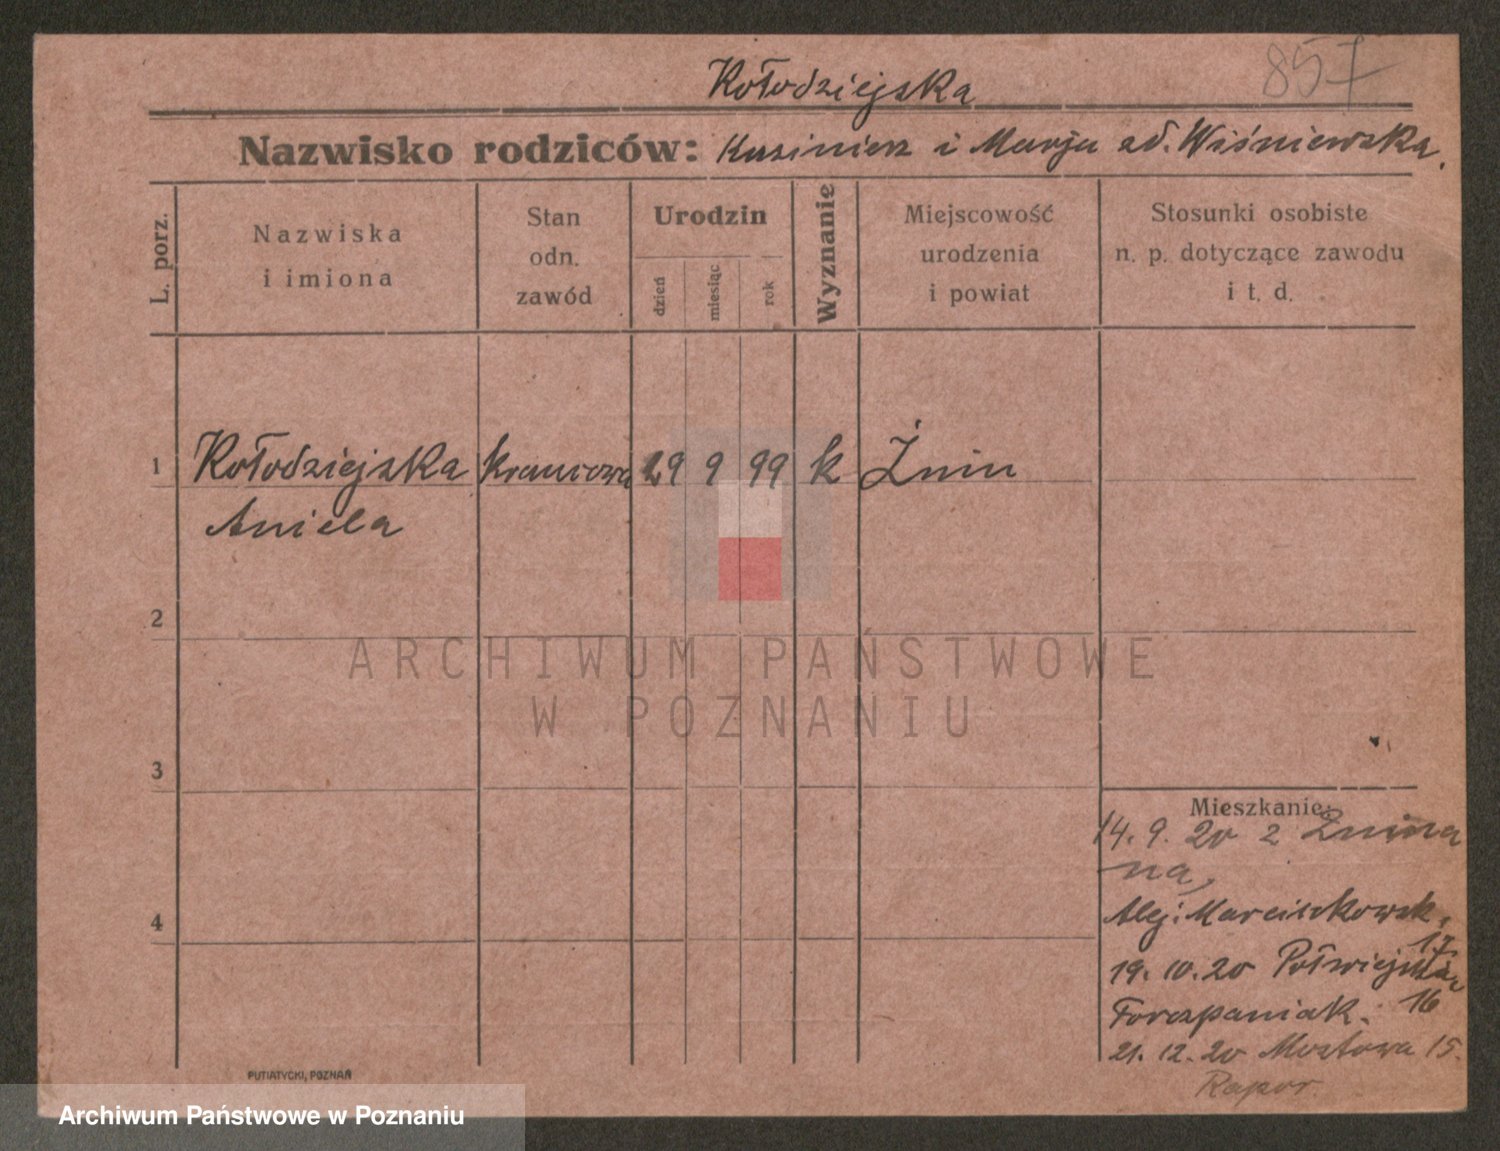 857
Kołodziejska
Nazwisko rodziców: Kazimierz i Marja zd. Wiśniewska.
L. porz.
Nazwiska
i imiona
Stan
odn.
zawód
Urodzin
dzień
miesiąc
rok
Wyznanie
Miejscowość
urodzenia
i powiat
Stosunki osobiste
n. p. dotyczące zawodu
i t. d.
1 Kołodziejska krawcowa 29 9 99 k Żnin
Aniela
2
ARCHIWUM PAŃSTWOWE
W POZNANIU
3
Mieszkanie:
14. 9. 20 z Żnina
na
Alej. Marcinkowsk.
17.
19. 10. 20 Półwiejska
16
21. 12. 20 Mostowa 15.
4
PUTIATYCKI, POZNAŃ
Archiwum Państwowe w Poznaniu